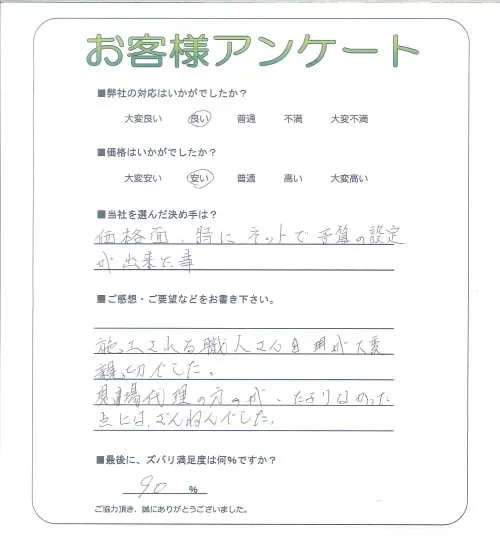 お客様アンケート
■弊社の対応はいかがでしたか？
大変良い 良い 普通 不満 大変不満
■価格はいかがでしたか？
大変安い 安い 普通 高い 大変高い
■当社を選んだ決め手は？
価格面、特にネットで予算の設定
が出来た事
■ご感想・ご要望などをお書き下さい。
施工される職人さん 用が大変
親切でした。
現場代理の方のが、たよりなかった
点には、ざんねんでした。
■最後に、ズバリ満足度は何%ですか？
90 %
ご協力頂き、誠にありがとうございました。